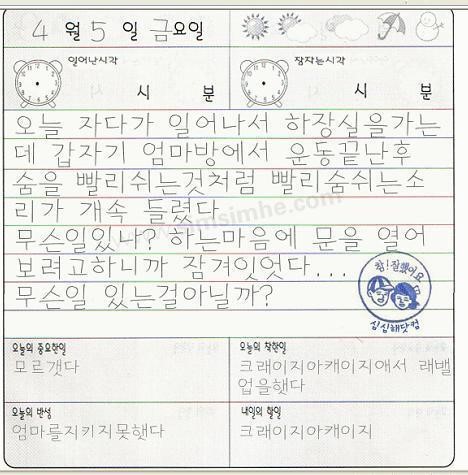 4 월 5 일 금요일
일어난시각 잠자는시각
시 분 시 분
오늘 자다가 일어나서 하장실을가는
데 갑자기 엄마방에서 운동끝난후
숨을 빨리쉬는것처럼 빨리숨쉬는소
리가 개속 들렸다
무슨일있나? 하는마음에 문을 열어
보려고하니까 잠겨잇엇다...
무슨일 있는걸아닐까?
simsimhe.com
참! 잘했어요
심심해닷컴
오늘의 중요한일
모르갯다
오늘의 착한일
크래이지아캐이지애서 래밸
업을햇다
오늘의 반성
엄마를지키지못햇다
내일의 할일
크래이지아캐이지